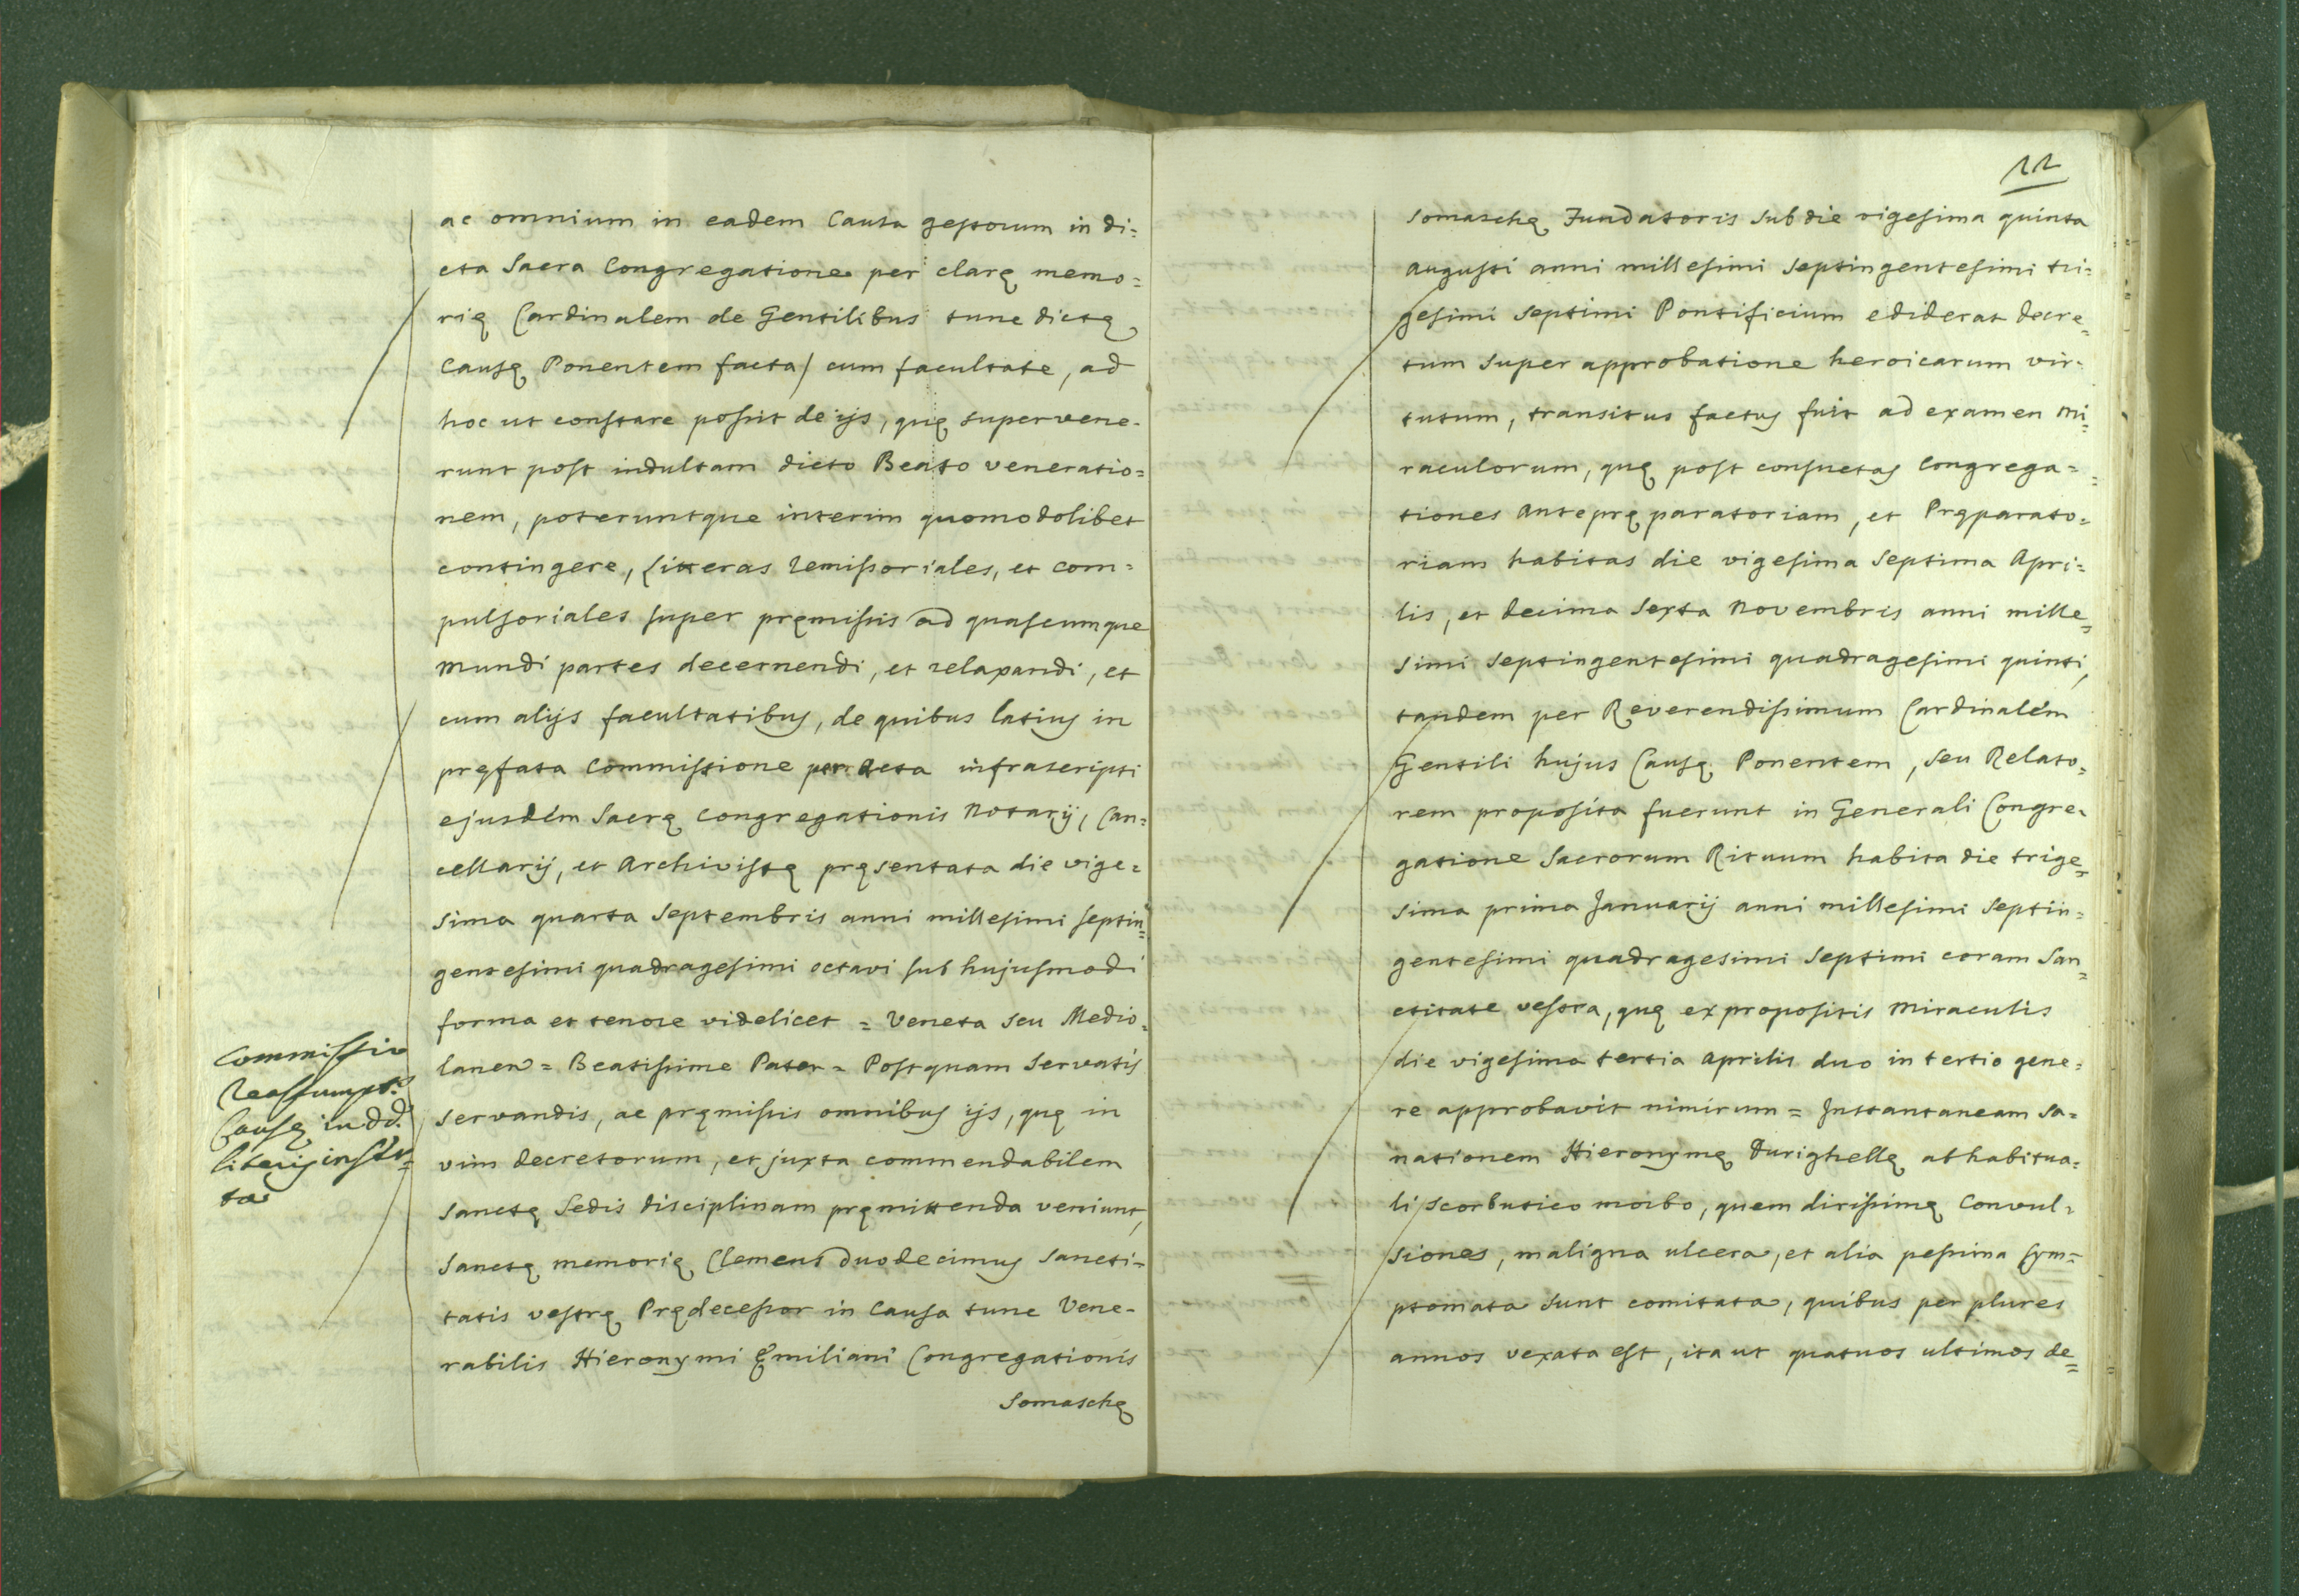 ac omnium in eadem Causa gestorum in di=
cta Sacra Congregatione per clarę memo=
rię Cardinalem de Gentilibus tunc dictę
Causę Ponentem facta/ cum facultate, ad
hoc ut constare possit de ijs, quę supervene-
runt post indultam dicto Beato veneratio=
nem, poteruntque interim quomodolibet
contingere, Litteras remissoriales, et com=
pulsoriales super pręmissis ad quascumque
Mundi partes decernendi, et relaxandi, et
cum alijs facultatibus, de quibus latius in
pręfata Commissione per Acta infrascripti
ejusdem Sacrę Congregationis Notarij, Can=
cellarij, et Archivistę pręsentata die vige=
sima quarta Septembris anni millesimi septin=
gentesimi quadragesimi octavi sub hujusmodi
forma et tenore videlicet = Veneta seu Medio=
lanen = Beatissime Pater = Postquam servatis
servandis, ac pręmissis omnibus ijs, quę in
vim decretorum, et juxta commendabilem
Sanctę Sedis disciplinam pręmittenda veniunt,
Sanctę memorię Clemens duodecimus Sancti=
tatis vestrę Prędecessor in Causa tunc Vene-
rabilis Hieronymi Ęmiliani Congregationis
Somaschę
Commissio
Reassumpt.s
Causę in dd.
literis inser=
ta
11
Somaschę Fundatoris sub die vigesima quinta
Augusti anni millesimi septingentesimi tri=
gesimi septimi Pontificium ediderat decre=
tum super approbatione heroicarum vir-
tutum, transitus factus fuit ad examen Mi=
raculorum, quę post consuetas Congrega=
tiones Antepręparatoriam, et Pręparato=
riam habitas die vigesima septima Apri=
lis, et decima sexta Novembris anni mille=
simi septingentesimi quadragesimi quinti,
tandem per Reverendissimum Cardinalem
Gentili hujus Causę Ponentem, seu Relato=
rem proposita fuerunt in Generali Congre=
gatione Sacrorum Rituum habita die trige=
sima prima Januarij anni millesimi septin=
gentesimi quadragesimi septimi coram San=
ctitate vestra, quę ex propositis Miraculis
die vigesima tertia Aprilis duo in tertio gene=
re approbavit nimirum = Instantaneam sa=
nationem Hieronymę Durighellę ab habitua=
li scorbutico morbo, quem dirissimę Convul=
siones, maligna ulcera, et alia pessima sym=
ptomata sunt comitata, quibus per plures
annos vexata est, ita ut quatuor ultimos de=